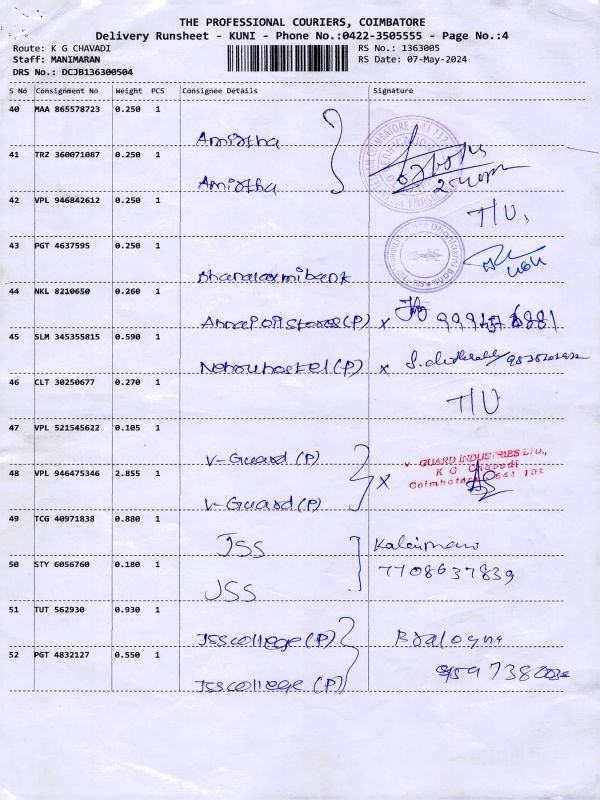 THE PROFESSIONAL COURIERS, COIMBATORE
Delivery Runsheet - KUNI - Phone No.:0422-3505555 - Page No.:4
Route: K G CHAVADI RS No.: 1363005
Staff: MANIMARAN RS Date: 07-May-2024
DRS No.: DCJB136300504
S No Consignment No Weight PCS Consignee Details Signature
40 MAA 865578723 0.250 1
Amirtha
41 TRZ 360071087 0.250 1
Amirtha
42 VPL 946842612 0.250 1
T/U,
43 PGT 4637595 0.250 1
Dhanalaxmi bank
44 NKL 8210650 0.260 1
Annapoli stores (P) x
45 SLM 345355815 0.590 1
Nehru hostel (P) x
46 CLT 30250677 0.270 1
T/U
47 VPL 521545622 0.105 1
V-Guard (P)
V GUARD INDUSTRIES LTD.,
K G Chavadi
48 VPL 946475346 2.855 1 x
Coimbatore
V-Guard (P)
49 TCG 40971838 0.880 1
JSS
50 STY 6056760 0.180 1
7708637839
JSS
51 TUT 562930 0.930 1
JSS college (P)
52 PGT 4832127 0.550 1
JSS college (P)